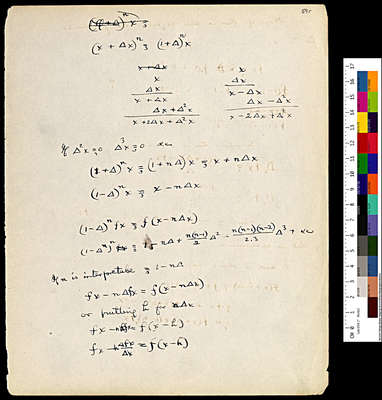 (x + Δx)ⁿ = (1+Δ)ⁿx
x + Δx
x
Δx
x + Δx
Δx + Δ²x
x + 2Δx + Δ²x
x
Δx
x - Δx
Δx - Δ²x
x - 2Δx + Δ²x
If Δ²x = 0 Δ³x = 0 &c
(1+Δ)ⁿx = (1+nΔ)x = x + nΔx
(1-Δ)ⁿx = x - nΔx
(1-Δ)ⁿ fx = f(x-nΔx)
(1-Δ)ⁿ = 1 - nΔ + n(n-1)/2 Δ² - n(n-1)(n-2)/2.3 Δ³ + &c
is interpretable = 1-nΔ
fx - nΔfx = f(x-nΔx)
or putting h for nΔx
fx - nΔfx = f(x-h)
fx - h Δfx/Δx = f(x-h)